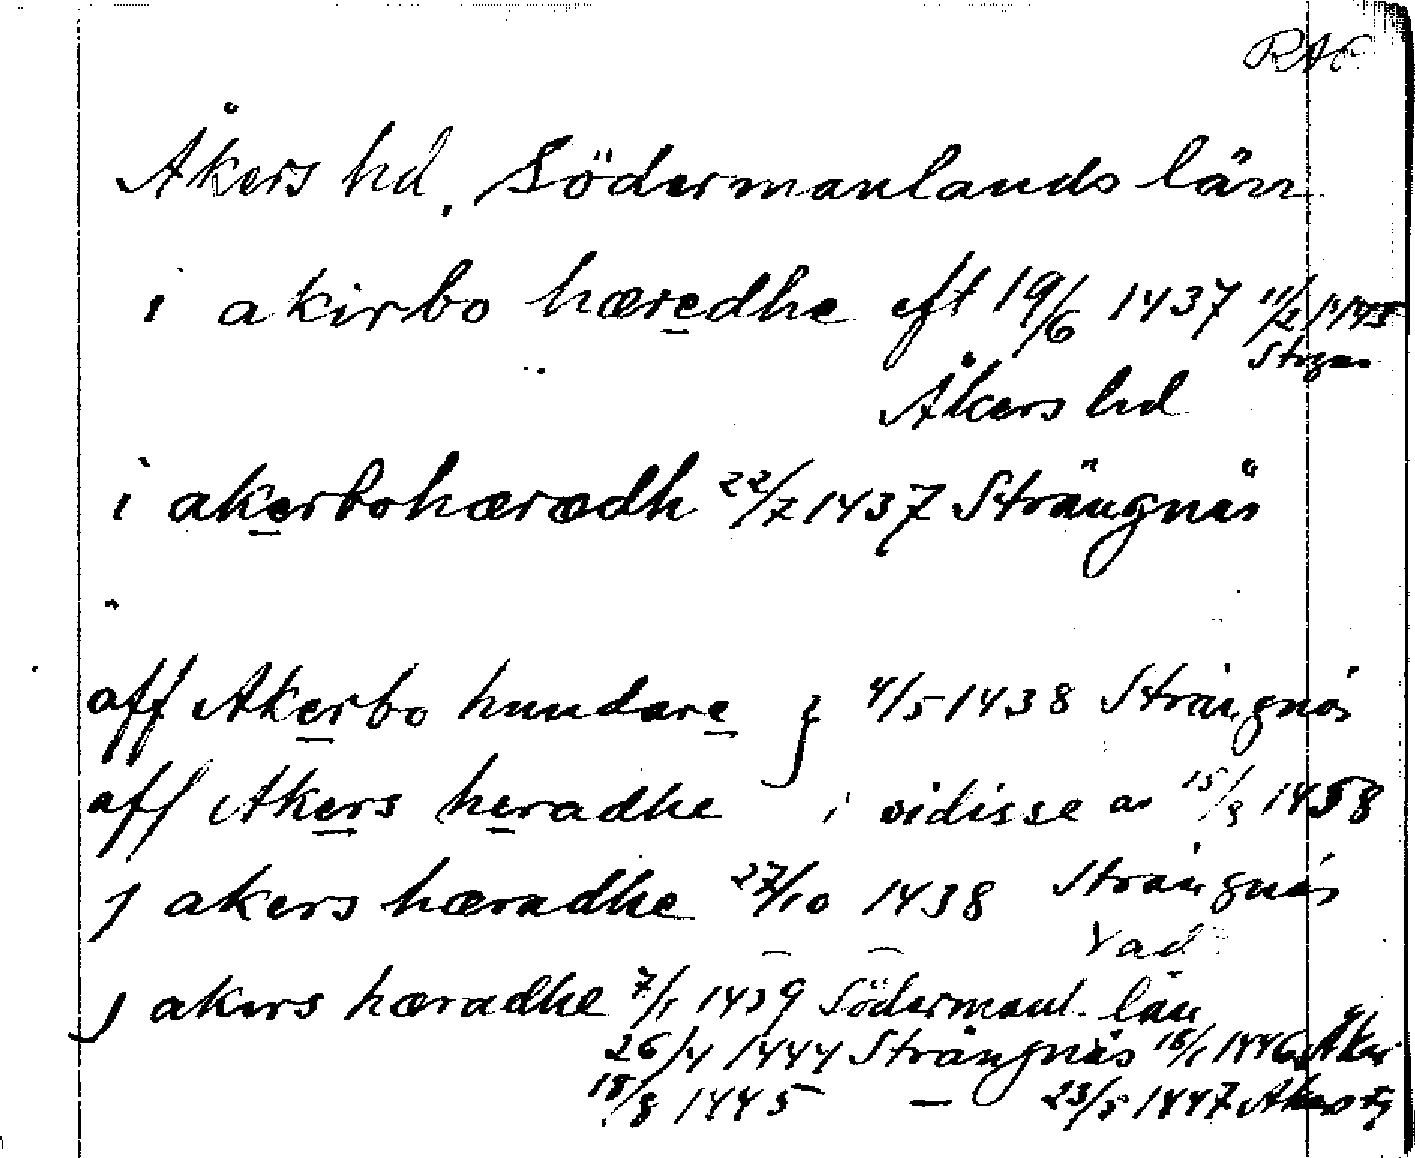 RAP
Åkers hd, Södermanlands län
i akirbo hæredhe eft 19/6 1437 11/2 1445
Strgn
Åkers hd
i akerbohæradh 22/7 1437 Strängnäs
aff Akerbo hundare } 4/5 1438 Strängnäs
aff Akers heradhe i vidisse av 15/9 1458
j akers hæradhe 27/10 1438 Strängnäs
Vad
j akers hæradhe 7/1 1439 Södermanl. län
26/4 1444 Strängnäs 18/1 1446 Åker
18/8 1445 — 23/5 1447 Akers